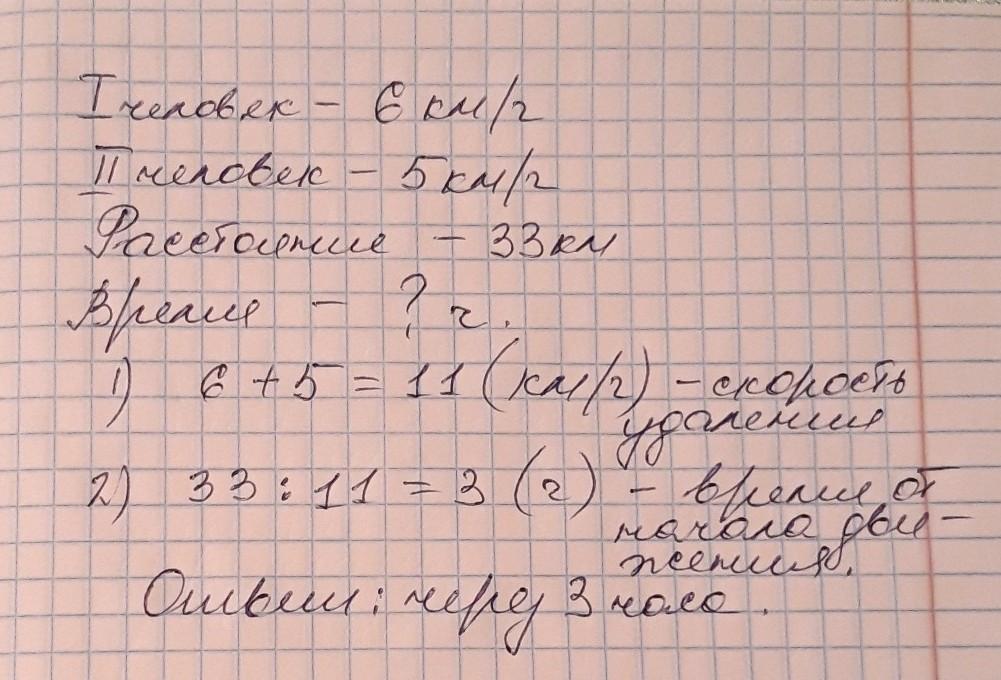 I человек - 6 км/ч
II человек - 5 км/ч
Расстояние - 33 км
Время - ? ч.
1) 6 + 5 = 11 (км/ч) - скорость
удаления
2) 33 : 11 = 3 (ч) - время от
начала дви-
жения.
Ответ: через 3 часа.